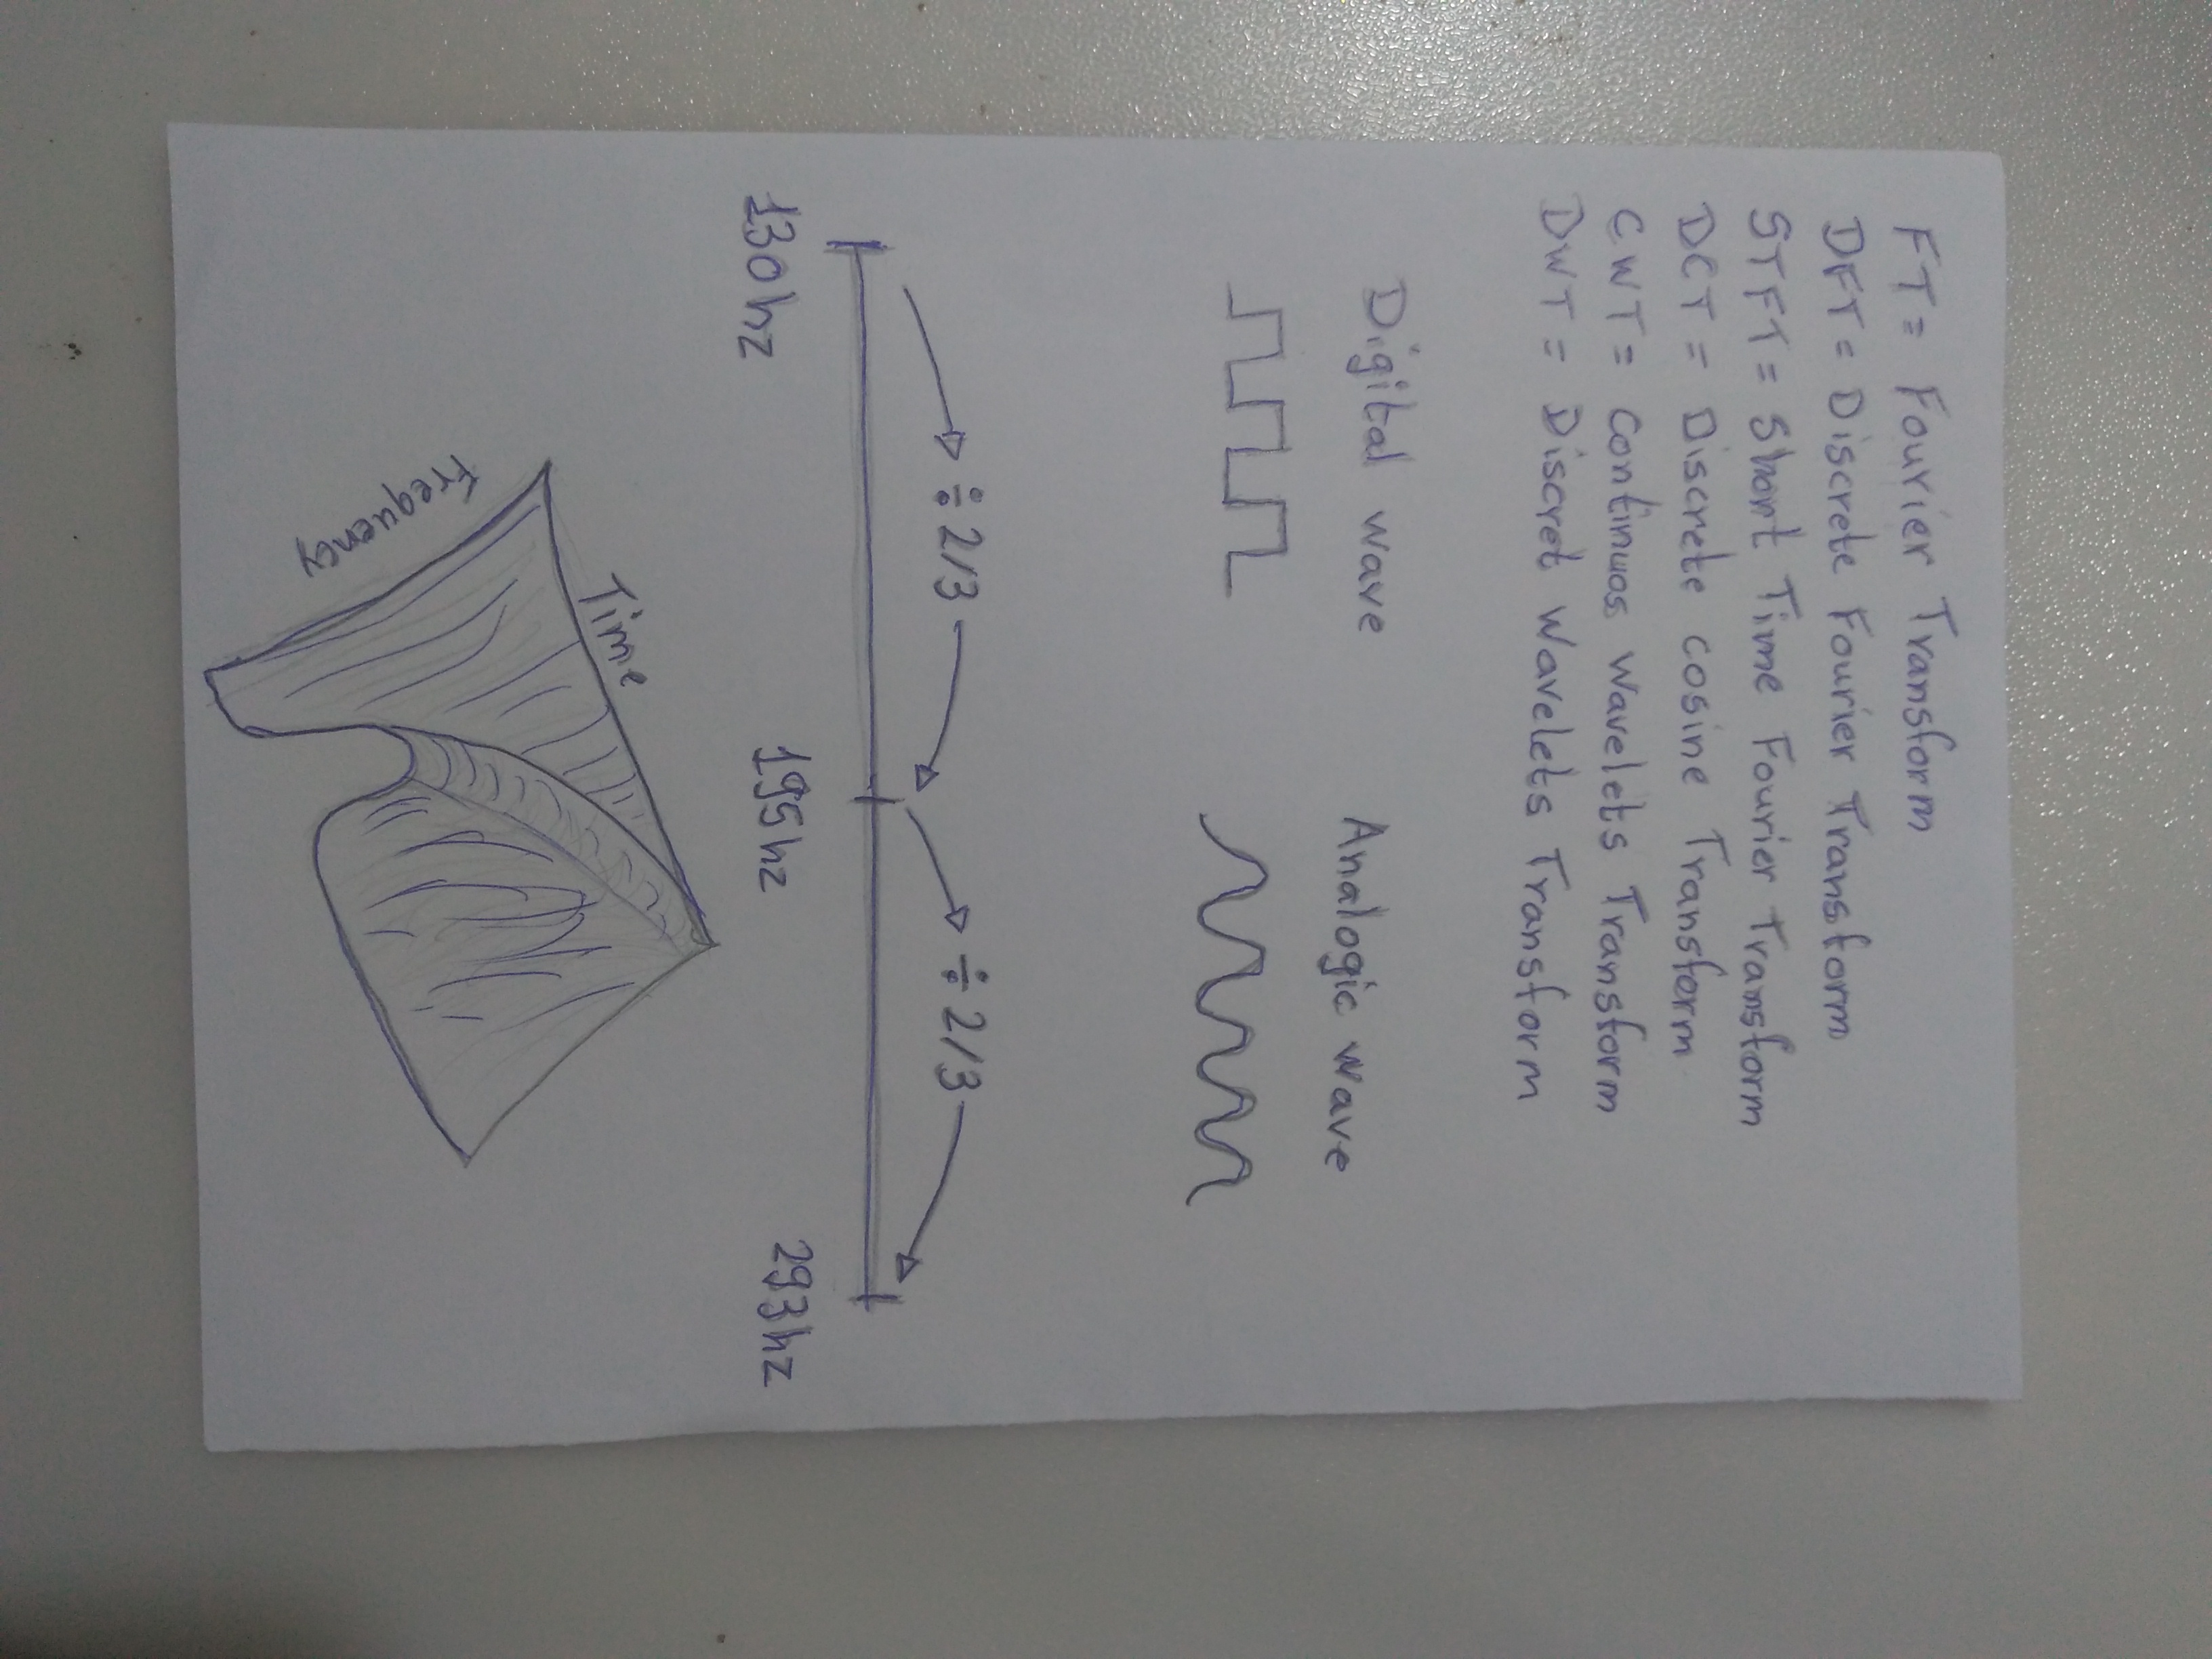 FT = Fourier Transform
DFT = Discrete Fourier Transform
STFT = Short Time Fourier Transform
DCT = Discrete cosine Transform
CWT = Continuos wavelets Transform
DWT = Discret Wavelets Transform
Digital wave Analogic wave
÷ 2/3 ÷ 2/3
130hz 195hz 293hz
Time
Frequency